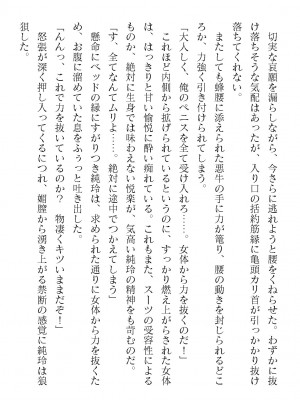 切実な哀願を漏らしながら、今さらに逃れようと腰をくねらせた。わずかに抜
け落ちそうな気配はあったが、入り口の括約筋縁に亀頭カリ首が引っかかり抜け
落ちてくれない。
またしても蜂腰に添えられた悪牛の手に力が篭り、腰の動きを封じられるどこ
ろか、力強く引き付けられてしまう。
「大人しく、俺のペニスを全て受け入れろ……。女体から力を抜くのだ！」
これほど内側から拡げられているというのに、すっかり燃え上がらされた女体
は、はっきりと甘い愉悦に酔い痴れている。これもまた、スーツの受容性による
ものか、絶対に生身では味わえない悦楽が、気高い純玲の精神をも苛むのだ。
「す、全てなんてムリよ……。絶対に途中でつかえてしまう」
懸命にベッドの縁にすがりつき純玲は、求められた通りに女体から力を抜いた
め、お腹に溜めていた息をふぅっと吐き出した。
「んんっ、これで力を抜いているのか？　物凄くキツいままだぞ！」
怒張が深く押し入ってくるにつれ、媚膣から湧き上がる禁断の感覚に純玲は狼
狽した。